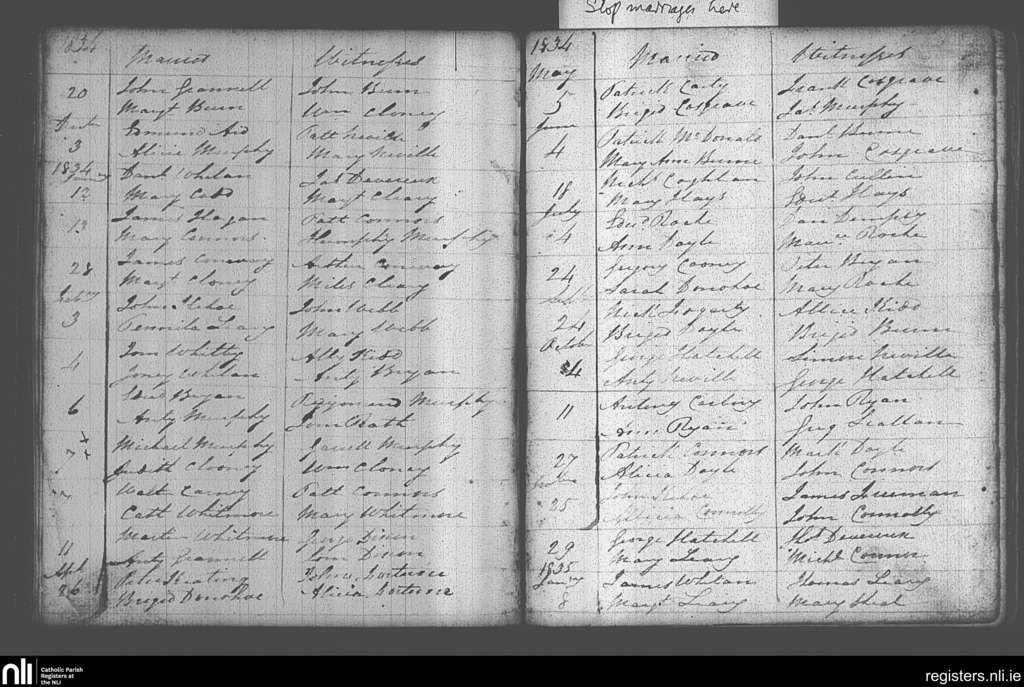 Stop marriages here
1834
Married Witnesses
20 John Grannell John Bunn
Margt Bunn Wm Cloney
Edmund Aid Patt Nevill
3 Alicia Murphy Mary Neville
1834 Danl Whelan Jas Devereux
12 Mary Codd Margt Cleary
James Hagan Patt Connors
13 Mary Connors Humphy Murphy
28 James Conway Arthur Conway
Margt Cloney Miles Cleary
John Kehoe John Webb
3 Leary Mary Webb
Tom Whitty Ally Kidd
4 Whelan Anty Bryan
Bryan Murphy
6 Anty Murphy Tom
Michael Murphy Murphy
7 Judith Clooney Wm Cloney
Walt Carney Patt Connors
Catt Whitmore Mary Whitmore
Martin Whitmore Dixon
11 Anty Grannell Tom Dixon
Apl Peter Keating
26 Briged Donohoe Alicia
1834 Married Witnesses
May Patrick Carty Frank Cosgrave
5 Briged Cosgrave Jas Murphy
June Patrick McDonald Danl Bunn
4 Mary Ann Bunn John Cosgrave
18 Nichs Coghlan John Cullen
Mary Hays Hays
July Edwd Roche Dan Dempsy
4 Ann Doyle Roche
24 Gregory Cooney Peter Bryan
Sarah Donohoe Mary Roche
24 Nick Fogarty Alicia Kidd
Briged Doyle Briged Bunn
Octob George Hatchell Simon Neville
4 Anty Neville George Hatchell
11 John Ryan
Ann Ryan Greg Scallan
27 Patrick Connors Mark Doyle
Alicia Doyle John Connors
25 John Kehoe James
Alicia Connolly John Connolly
29 George Hatchell Devereux
Mary Leary Michl Connor
1835
January James Whelan Thomas Leary
8 Margt Leary Mary
nli
Catholic Parish
Registers at
the NLI
registers.nli.ie